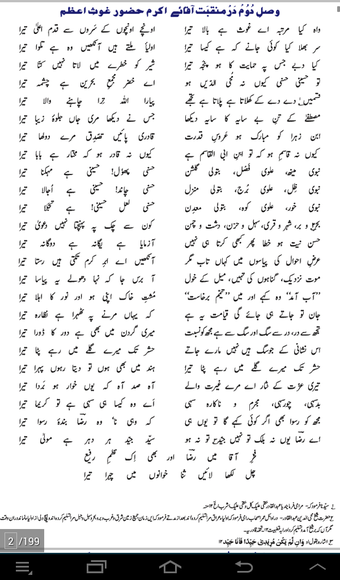 وصل دُوُم دَر منقبَت آقائے اکرم حضور غوثِ اعظم
واہ کیا مرتبہ اے غوث ہے بالا تیرا اونچے اونچوں کے سَروں سے قدم اعلیٰ تیرا
سر بھلا کیا کوئی جانے کہ ہے کیسا تیرا اولیا ملتے ہیں آنکھیں وہ ہے تلوا تیرا
کیا دبے جس پہ حمایت کا ہو پنجہ تیرا شیر کو خطرے میں لاتا نہیں کتّا تیرا
تو حسینی حسنی کیوں نہ محی الدّیں ہو اے خضر مجمعِ بحرین ہے چشمہ تیرا
قسمیں دے دے کے کھلاتا ہے پلاتا ہے تجھے پیارا اللہ ترا چاہنے والا تیرا
مصطفےٰ کے تنِ بے سایہ کا سایہ دیکھا جس نے دیکھا مری جاں جلوۂ زیبا تیرا
ابنِ زہرا کو مبارک ہو عروسِ قدرت قادری پائیں تصدّق مرے دولھا تیرا
کیوں نہ قاسم ہو کہ تو ابنِ ابی القاسم ہے کیوں نہ قادر ہو کہ مختار ہے بابا تیرا
نبوی مینھ، علوی فصل، بتولی گلشن حسنی پھول! حسینی ہے مہکنا تیرا
نبوی ظِل، علوی بُرج، بتولی منزل حسنی چاند! حسینی ہے اُجالا تیرا
نبوی خور، علوی کوہ، بتولی معدن حسنی لعل! حسینی ہے تجلّا تیرا
بحر و بر، شہر و قریٰ، سہل و حزن، دشت و چمن کون سے چک پہ پہنچتا نہیں دعویٰ تیرا
حسنِ نیت ہو خطا پھر کبھی کرتا ہی نہیں آزمایا ہے یگانہ ہے دوگانہ تیرا
عرضِ احوال کی پیاسوں میں کہاں تاب مگر آنکھیں اے ابرِ کرم تکتی ہیں رستا تیرا
موت نزدیک، گناہوں کی تہیں، میل کے خول آ برس جا کہ نہا دھو لے یہ پیاسا تیرا
”آب آمد“ وہ کہے اور میں ”تیمم برخاست“ مشتِ خاک اپنی ہو اور نور کا اہلا تیرا
جان تو جاتے ہی جائے گی قیامت یہ ہے کہ یہاں مرنے پہ ٹھہرا ہے نظارہ تیرا
تجھ سے در، در سے سگ اور سگ سے ہے مجھ کو نسبت میری گردن میں بھی ہے دور کا ڈورا تیرا
اس نشانی کے جو سگ ہیں نہیں مارے جاتے حشر تک میرے گلے میں رہے پٹا تیرا
حشر تک میرے گلے میں رہے پٹا تیرا ہند میں بھی ہوں تو دیتا رہوں پہرا تیرا
تیری عزت کے نثار اے مرے غیرت والے آہ صد آہ کہ یوں خوار ہو بُردا تیرا
بد سہی، چور سہی، مجرم و ناکارہ سہی اے وہ کیسا ہی سہی ہے تو کریما تیرا
مجھ کو رسوا بھی اگر کوئی کہے گا تو یوں ہی کہ وہی نا، وہ رضاؔ بندۂ رسوا تیرا
اے رضاؔ یوں نہ بلک تو نہیں جیّد تو نہ ہو سیّدِ جیّدِ ہر دہر ہے مولیٰ تیرا
فخرِ آقا میں رضاؔ اور بھی اِک نظمِ رفیع
چل لکھا لائیں ثنا خوانوں میں چہرا تیرا
2 /199